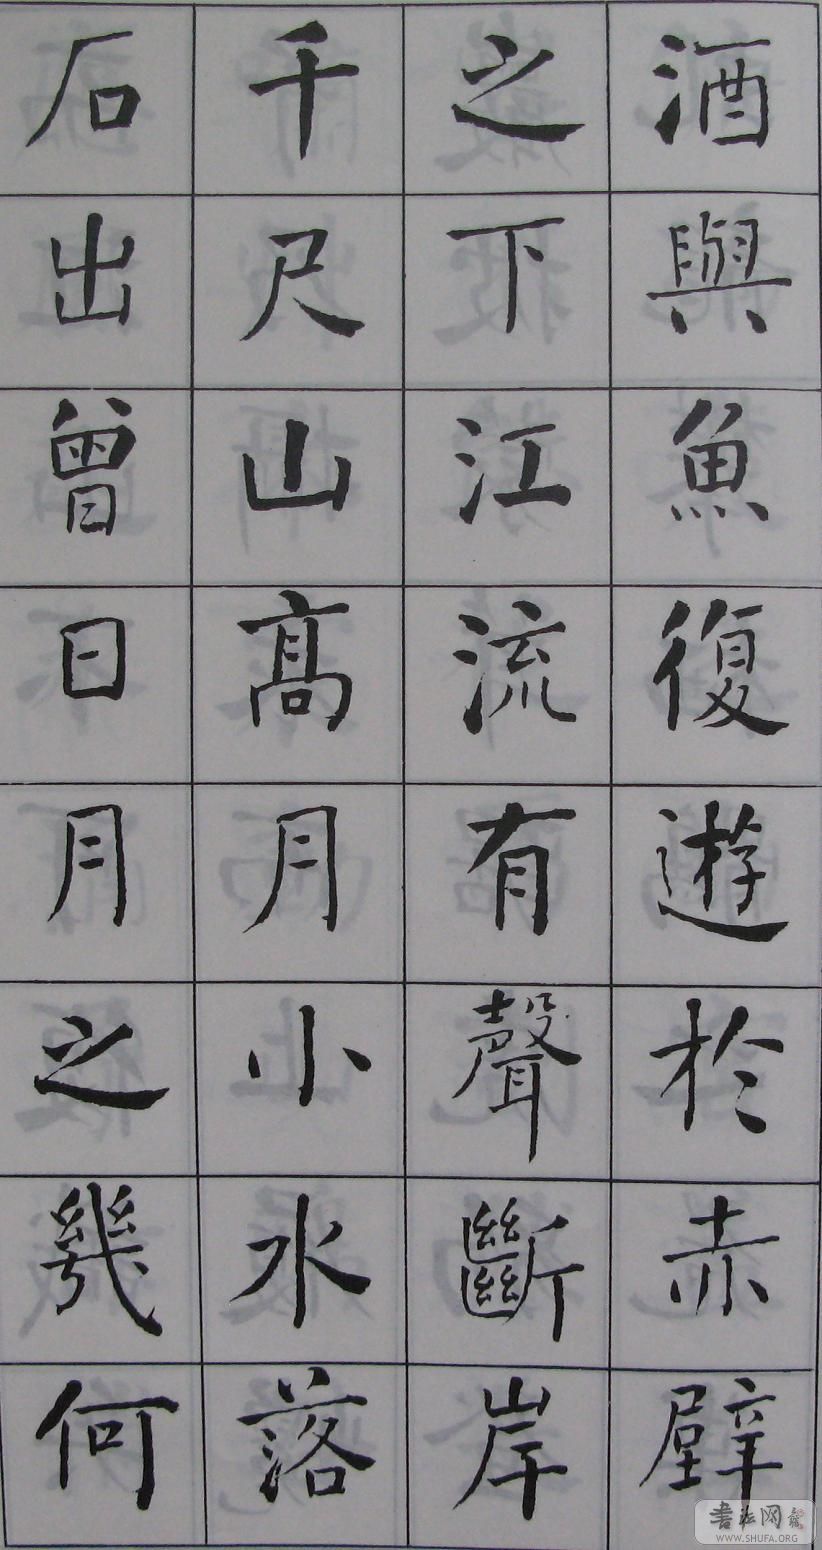 酒與魚復遊於赤壁
之下江流有聲斷岸
千尺山高月小水落
石出曾日月之幾何
書法网
WWW.SHUFA.ORG